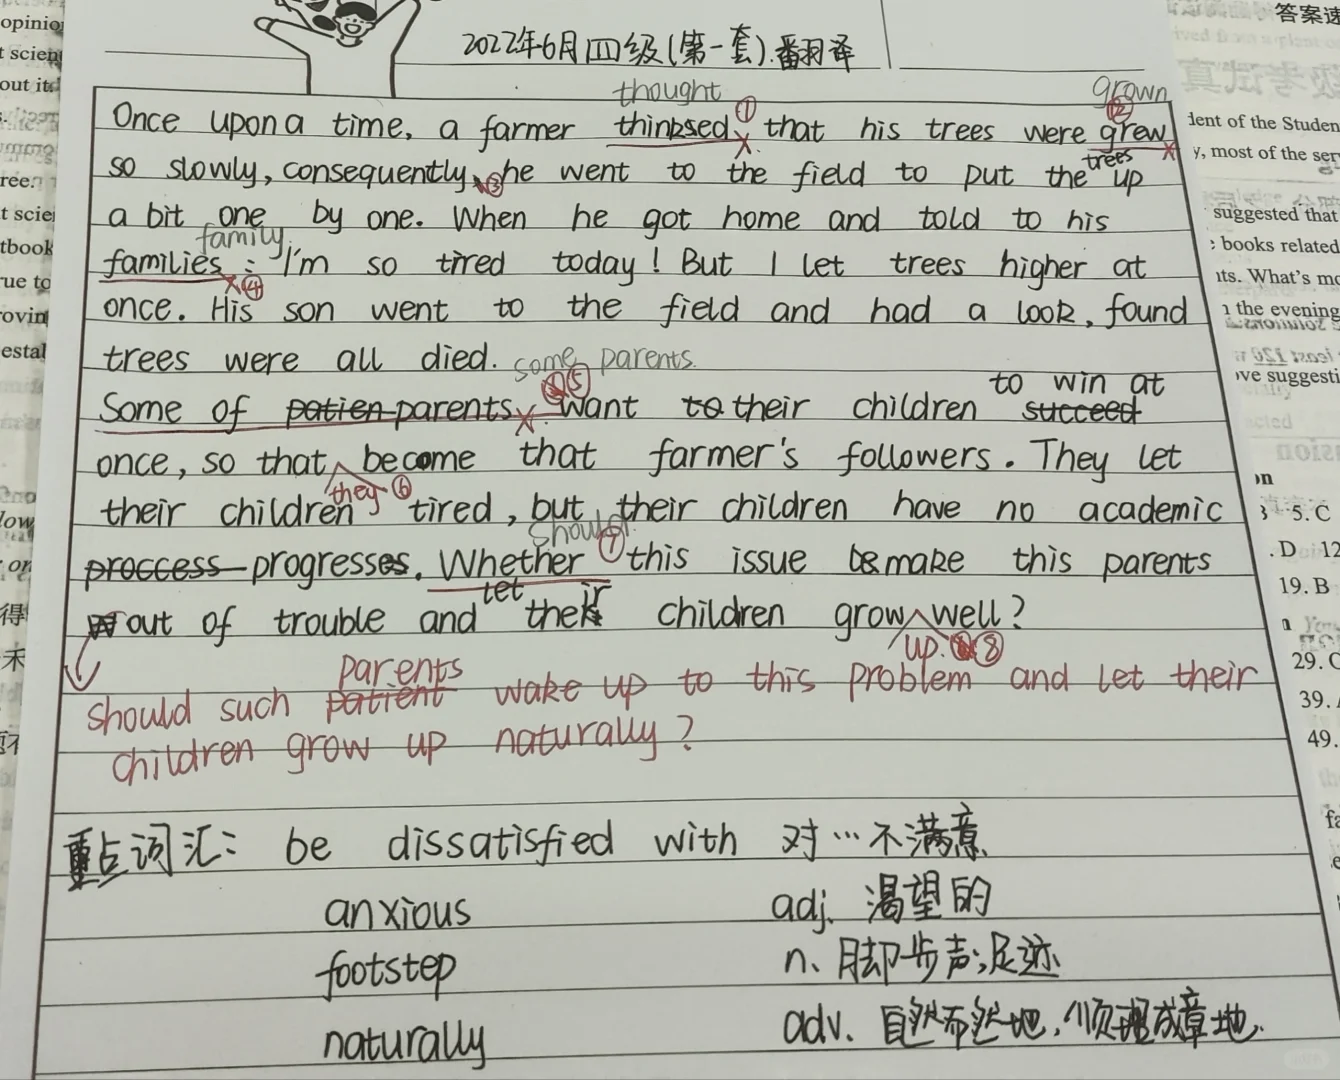 2022年6月四级(第一套).翻译
thought ① grown ②
Once upon a time, a farmer thinksed that his trees were grew
so slowly, consequently, ③ he went to the field to put the trees up
a bit one by one. When he got home and told to his
family
families : I'm so tired today! But I let trees higher at
④
once. His son went to the field and had a look, found
trees were all died. some parents.
⑤ to win at
Some of patien parents want to their children succeed
once, so that become that farmer's followers. They let
they ⑥
their children tired, but their children have no academic
should
proccess progresses. Whether ⑦ this issue be make this parents
let
out of trouble and their children grow well?
up. ⑧
parents
should such patient wake up to this problem and let their
children grow up naturally?
重点词汇: be dissatisfied with 对…不满意
anxious adj. 渴望的
footstep n. 脚步声;足迹
naturally adv. 自然而然地,顺理成章地.
答案速
opinio
t scien
out it
ree.
t scie
tbook
rue to
rovin
estal
low
or
得
未
dent of the Studen
y, most of the ser
suggested that
books related
nts. What's mo
n the evening
ve suggesti
5. C
. D 12
19. B
29. C
39.
49.